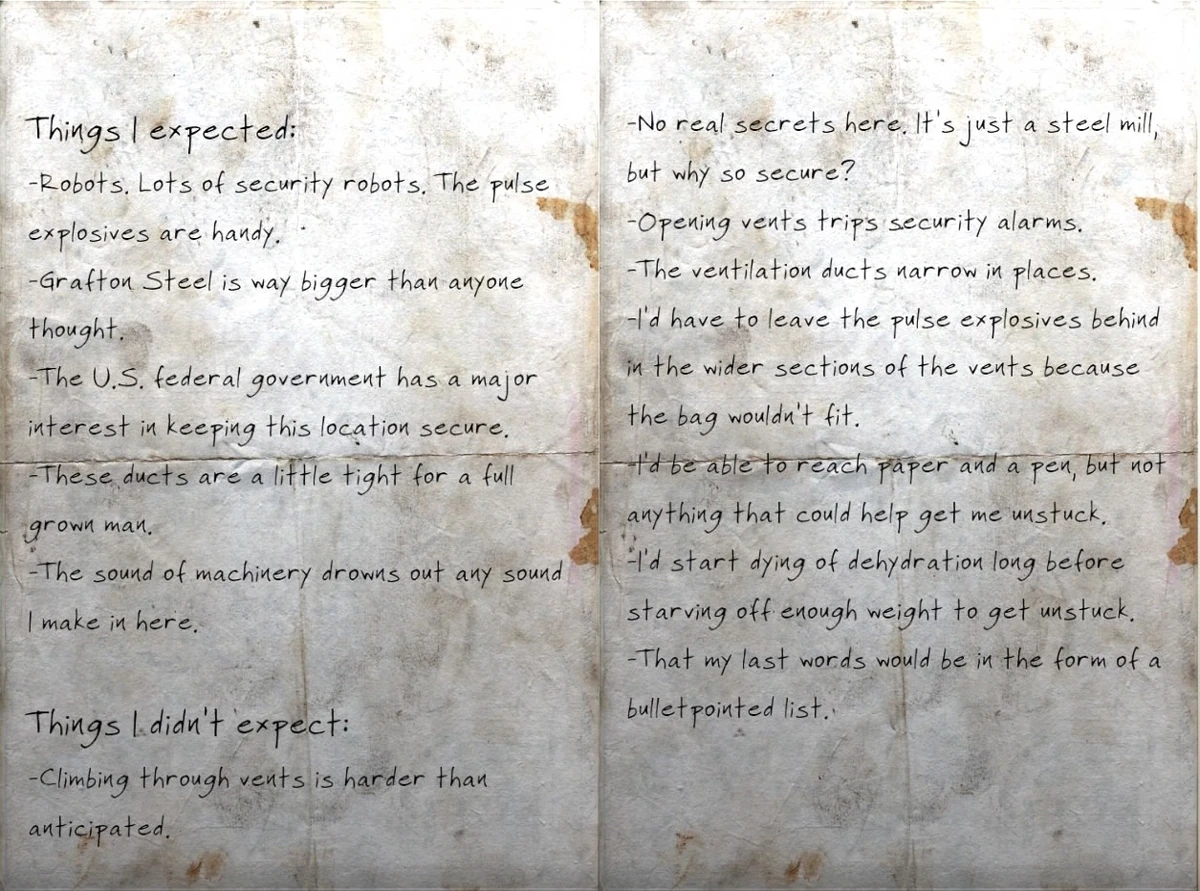 Things I expected:
-Robots. Lots of security robots. The pulse
explosives are handy.
-Grafton Steel is way bigger than anyone
thought.
-The U.S. federal government has a major
interest in keeping this location secure.
-These ducts are a little tight for a full
grown man.
-The sound of machinery drowns out any sound
I make in here.
Things I didn't expect:
-Climbing through vents is harder than
anticipated.
-No real secrets here. It's just a steel mill,
but why so secure?
-Opening vents trips security alarms.
-The ventilation ducts narrow in places.
-I'd have to leave the pulse explosives behind
in the wider sections of the vents because
the bag wouldn't fit.
-I'd be able to reach paper and a pen, but not
anything that could help get me unstuck.
-I'd start dying of dehydration long before
starving off enough weight to get unstuck.
-That my last words would be in the form of a
bulletpointed list.